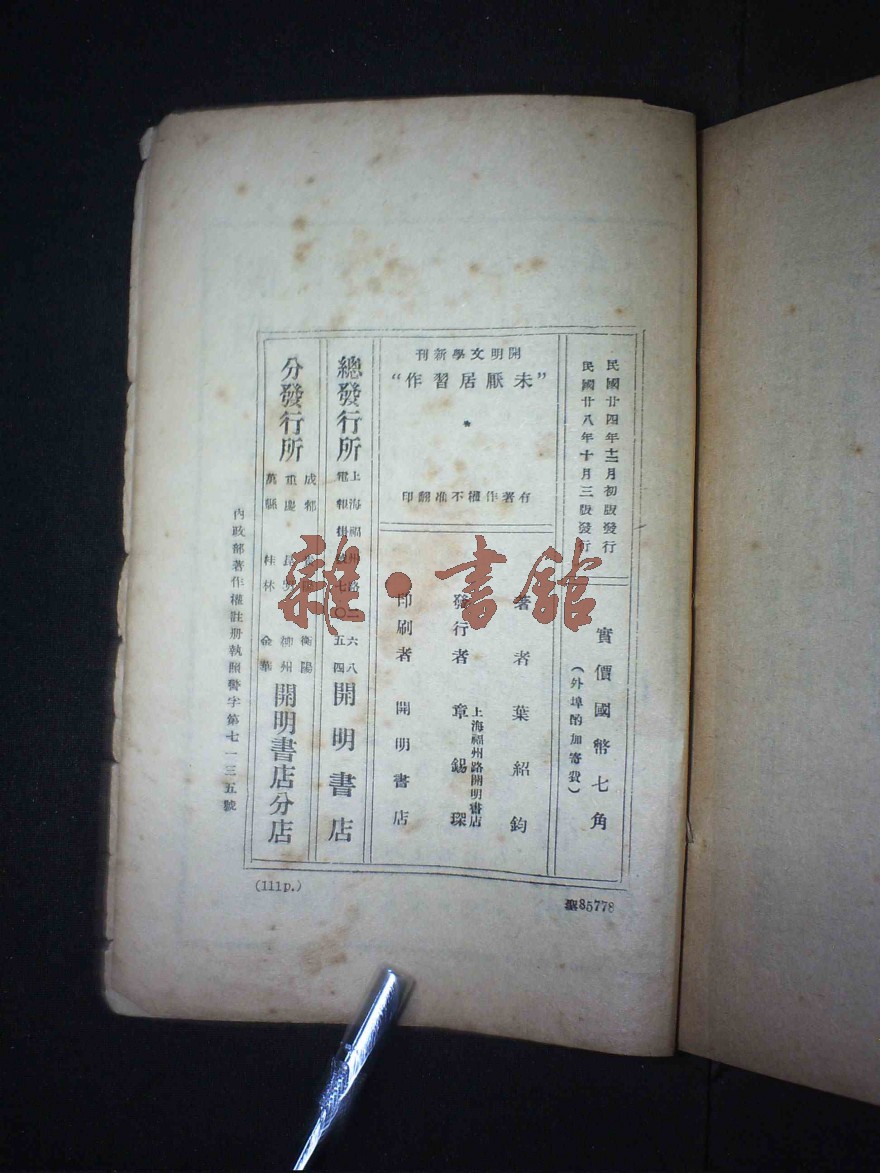 民國廿四年十二月初版發行
民國廿八年十月三版發行
實價國幣七角
(外埠酌加寄費)
開明文學新刊
“未厭居習作”
*
有著作權不准翻印
著者 葉紹鈞
發行者 章錫琛
上海福州路開明書店
印刷者 開明書店
總發行所
上海福州路二六八
電報掛號七〇五四
開明書店
分發行所
成都 衡陽
重慶 昆明 柳州
萬縣 桂林 金華
開明書店分店
內政部著作權註册執照警字第七一三五號
(111p.)
85778
雜·書館